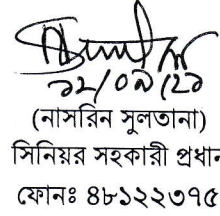 ১২/০৯/২১
(নাসরিন সুলতানা)
সিনিয়র সহকারী প্রধান
ফোনঃ ৪৮১২২৩৭৫